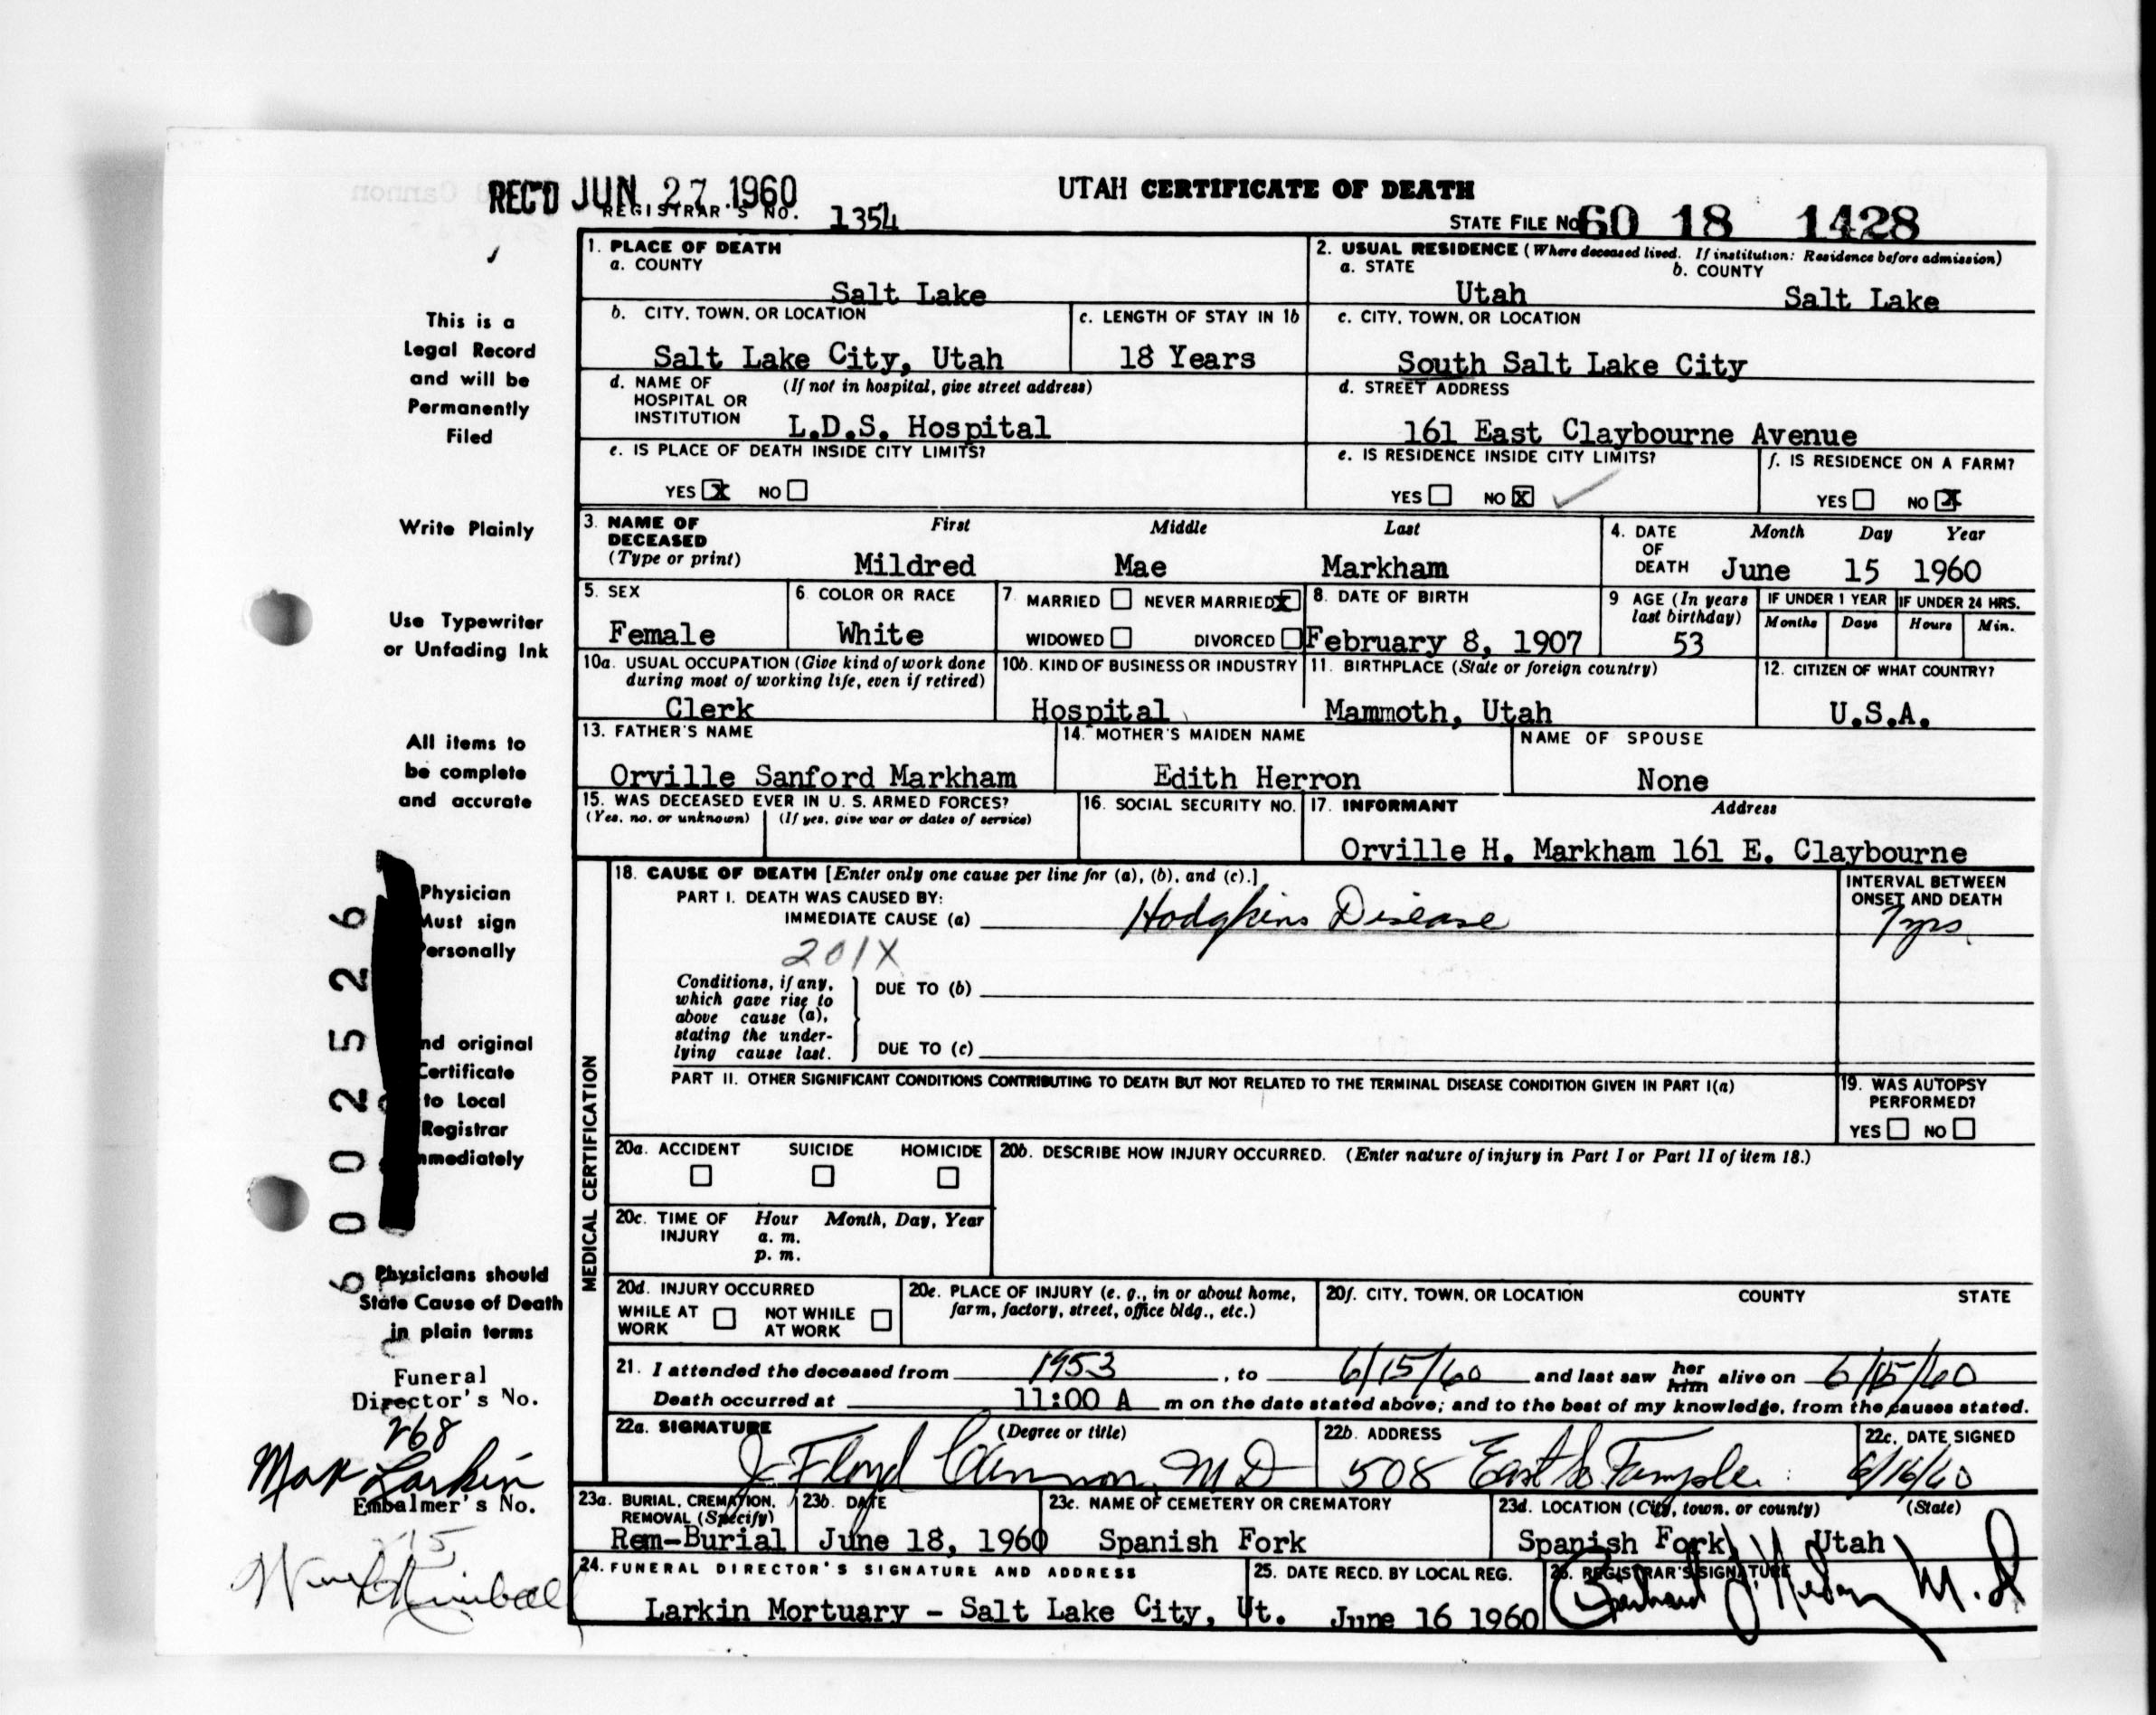 REC'D JUN 27 1960
UTAH CERTIFICATE OF DEATH
REGISTRAR'S NO. 1354
STATE FILE No 60 18 1428
1. PLACE OF DEATH
a. COUNTY
Salt Lake
2. USUAL RESIDENCE (Where deceased lived. If institution: Residence before admission)
a. STATE
Utah
b. COUNTY
Salt Lake
b. CITY, TOWN, OR LOCATION
Salt Lake City, Utah
c. LENGTH OF STAY IN 1b
18 Years
c. CITY, TOWN, OR LOCATION
South Salt Lake City
d. NAME OF HOSPITAL OR INSTITUTION (If not in hospital, give street address)
L.D.S. Hospital
d. STREET ADDRESS
161 East Claybourne Avenue
e. IS PLACE OF DEATH INSIDE CITY LIMITS?
YES X NO
e. IS RESIDENCE INSIDE CITY LIMITS?
YES NO X
f. IS RESIDENCE ON A FARM?
YES NO X
3. NAME OF DECEASED (Type or print)
First Middle Last
Mildred Mae Markham
4. DATE OF DEATH
Month Day Year
June 15 1960
5. SEX
Female
6. COLOR OR RACE
White
7. MARRIED NEVER MARRIED X
WIDOWED DIVORCED
8. DATE OF BIRTH
February 8, 1907
9 AGE (In years last birthday)
53
IF UNDER 1 YEAR
Months Days
IF UNDER 24 HRS.
Hours Min.
10a. USUAL OCCUPATION (Give kind of work done during most of working life, even if retired)
Clerk
10b. KIND OF BUSINESS OR INDUSTRY
Hospital
11. BIRTHPLACE (State or foreign country)
Mammoth, Utah
12. CITIZEN OF WHAT COUNTRY?
U.S.A.
13. FATHER'S NAME
Orville Sanford Markham
14. MOTHER'S MAIDEN NAME
Edith Herron
NAME OF SPOUSE
None
15. WAS DECEASED EVER IN U. S. ARMED FORCES?
(Yes, no, or unknown) (If yes, give war or dates of service)
16. SOCIAL SECURITY NO.
17. INFORMANT Address
Orville H. Markham 161 E. Claybourne
MEDICAL CERTIFICATION
18. CAUSE OF DEATH [Enter only one cause per line for (a), (b), and (c).]
PART I. DEATH WAS CAUSED BY:
IMMEDIATE CAUSE (a) Hodgkins Disease
INTERVAL BETWEEN ONSET AND DEATH
7 yrs.
201X
Conditions, if any, which gave rise to above cause (a), stating the underlying cause last.
DUE TO (b)
DUE TO (c)
PART II. OTHER SIGNIFICANT CONDITIONS CONTRIBUTING TO DEATH BUT NOT RELATED TO THE TERMINAL DISEASE CONDITION GIVEN IN PART I(a)
19. WAS AUTOPSY PERFORMED?
YES NO
20a. ACCIDENT SUICIDE HOMICIDE
20b. DESCRIBE HOW INJURY OCCURRED. (Enter nature of injury in Part I or Part II of item 18.)
20c. TIME OF INJURY
Hour Month, Day, Year
a. m.
p. m.
20d. INJURY OCCURRED
WHILE AT WORK NOT WHILE AT WORK
20e. PLACE OF INJURY (e. g., in or about home, farm, factory, street, office bldg., etc.)
20f. CITY, TOWN, OR LOCATION COUNTY STATE
21. I attended the deceased from 1953, to 6/15/60 and last saw her him alive on 6/15/60
Death occurred at 11:00 A m on the date stated above; and to the best of my knowledge, from the causes stated.
22a. SIGNATURE (Degree or title)
J. Floyd Cannon, M D
22b. ADDRESS
508 East So Temple
22c. DATE SIGNED
6/16/60
23a. BURIAL, CREMATION, REMOVAL (Specify)
Rem-Burial
23b. DATE
June 18, 1960
23c. NAME OF CEMETERY OR CREMATORY
Spanish Fork
23d. LOCATION (City, town, or county) (State)
Spanish Fork Utah
24. FUNERAL DIRECTOR'S SIGNATURE AND ADDRESS
Larkin Mortuary - Salt Lake City, Ut.
25. DATE RECD. BY LOCAL REG.
June 16 1960
26. REGISTRAR'S SIGNATURE
M. D
This is a
Legal Record
and will be
Permanently
Filed
Write Plainly
Use Typewriter
or Unfading Ink
All items to
be complete
and accurate
Physician
Must sign
Personally
nd original
Certificate
to Local
Registrar
mmediately
6 0 0 2 5 2 6
Physicians should
State Cause of Death
in plain terms
Funeral
Director's No.
268
Max Larkin
Embalmer's No.
Kimball